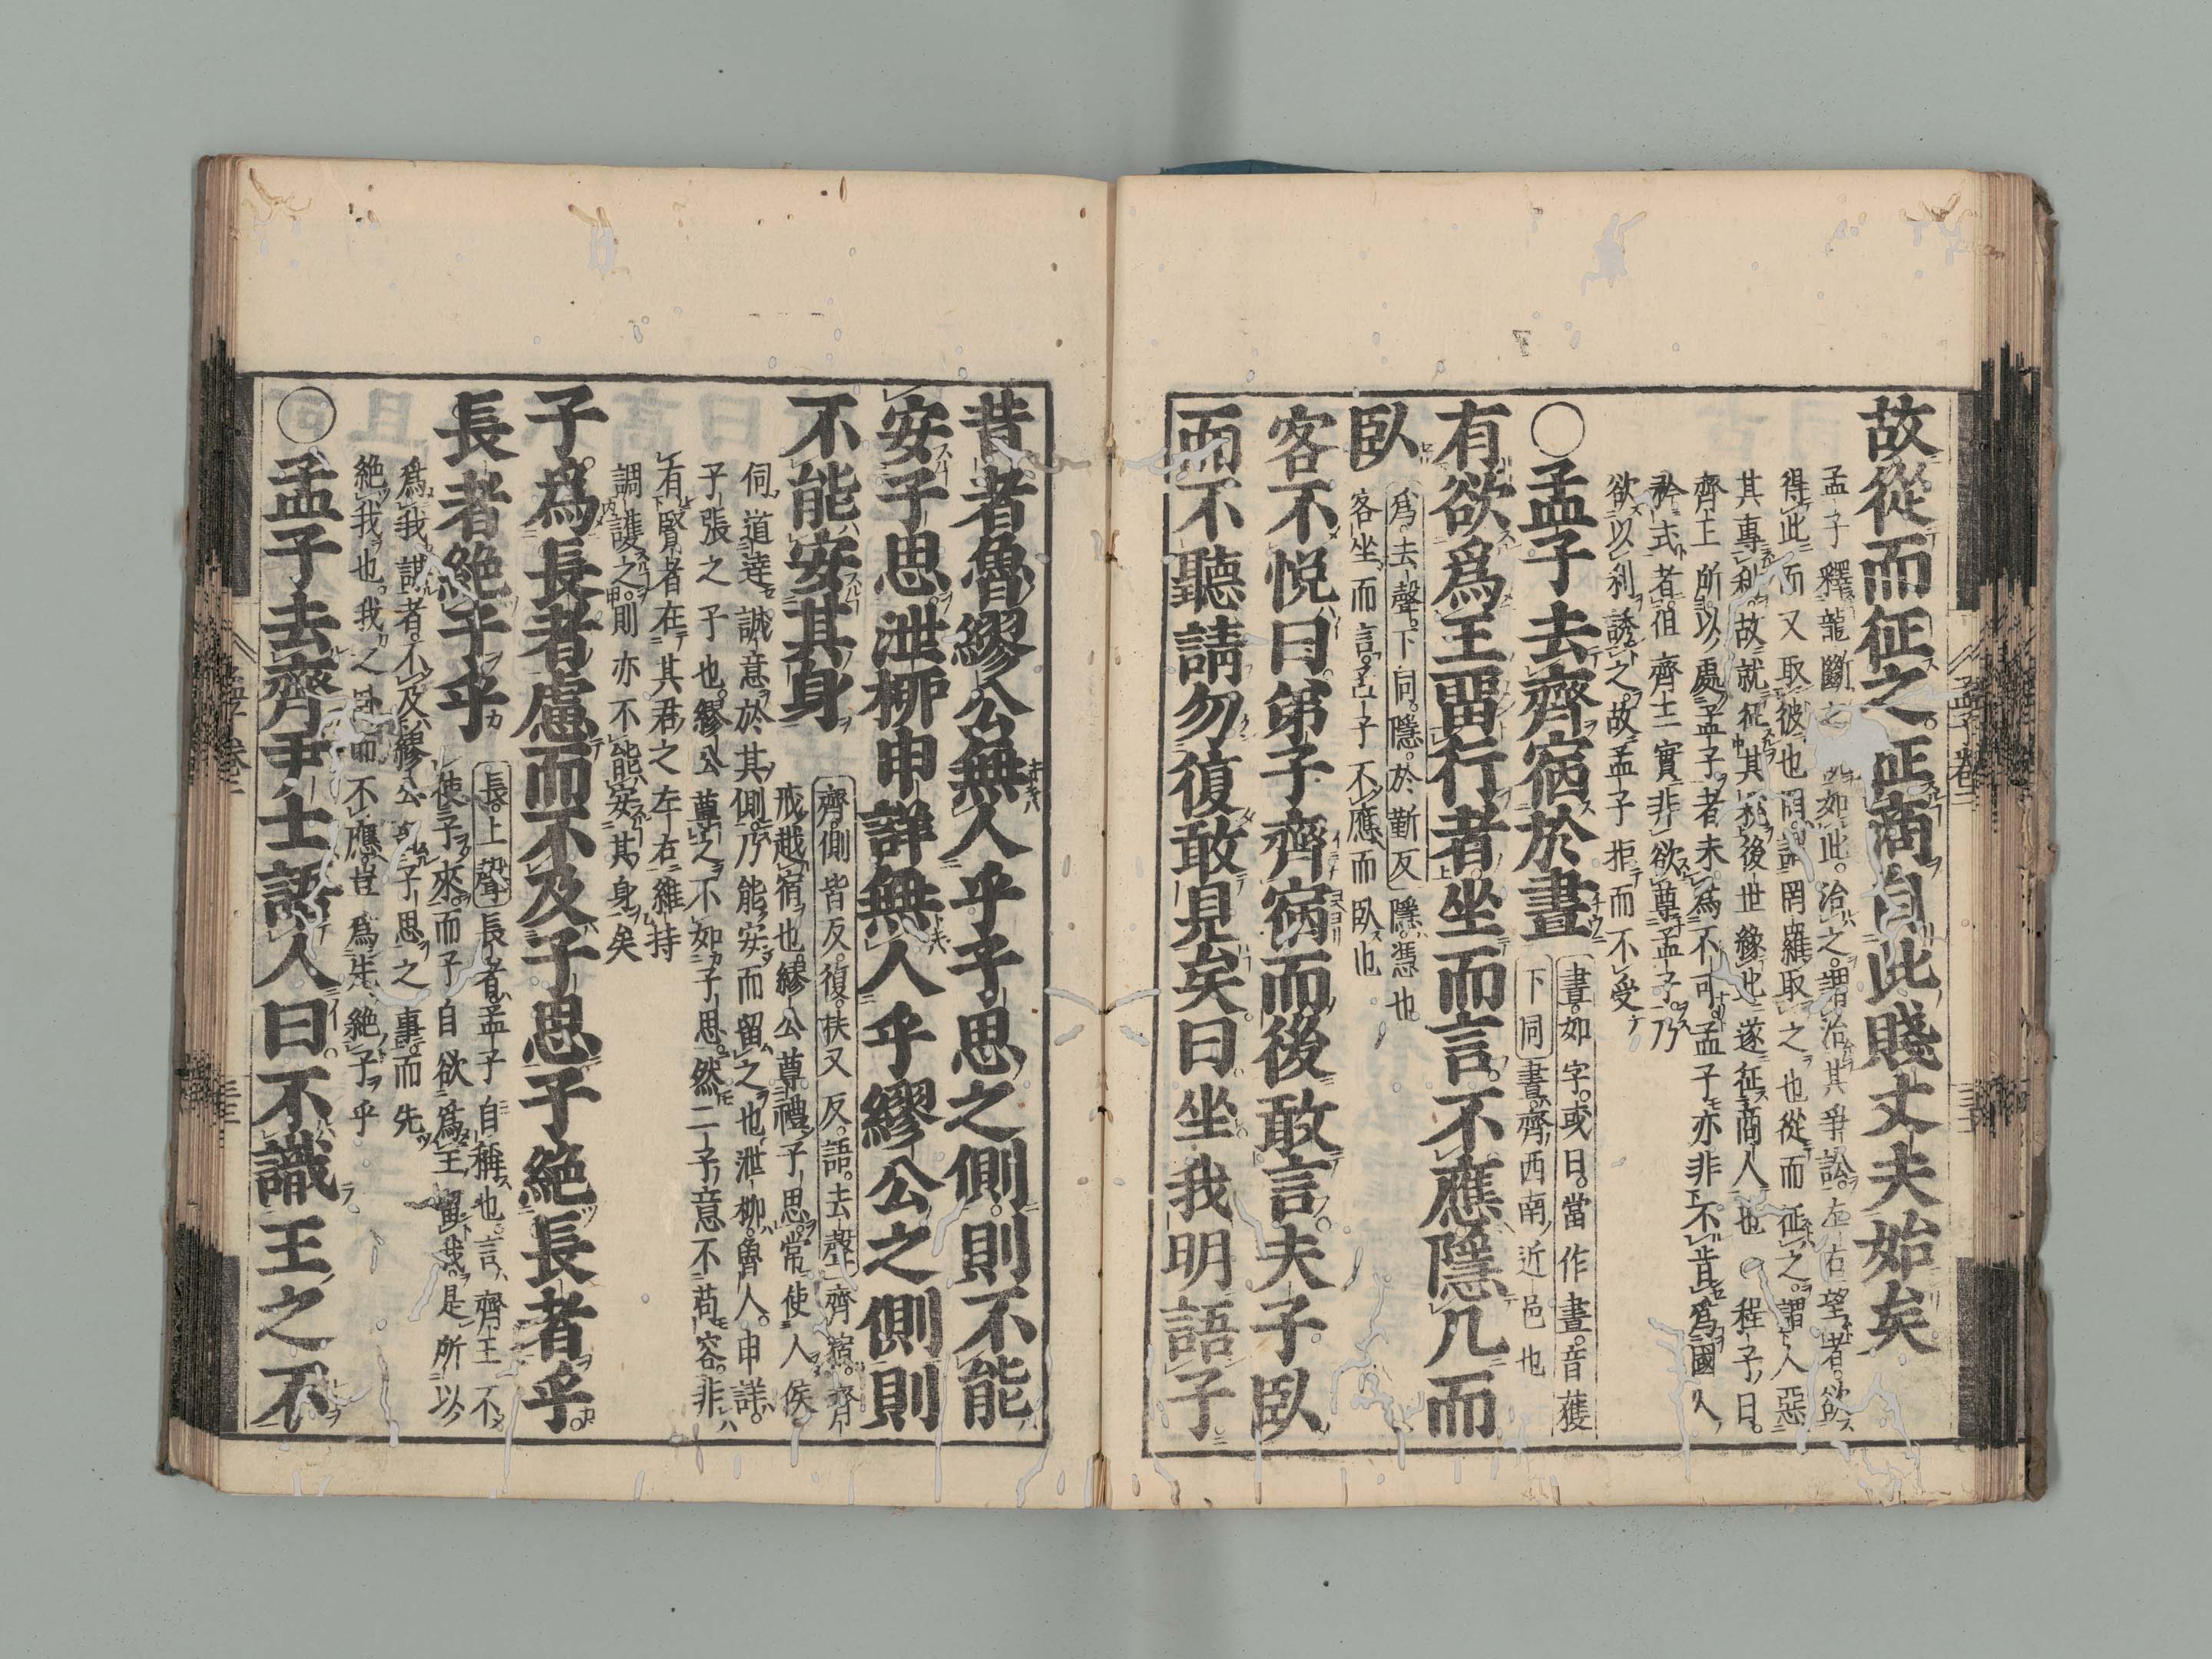 故從而征之。征商自此賤丈夫始矣
孟子釋龍斷之 如此。治之。謂治其爭訟。左右望者。欲
得此而又取彼也。罔。謂罔羅取之也。從而征之。謂人惡
其專利。故就征其稅。後世緣此遂征商人也 ○ 程子曰。
齊王所以處孟子者。未爲不可。孟子亦非不肯爲國人
矜式者。但齊王實非欲尊孟子。乃
欲以利誘之。故孟子拒而不受
○孟子去齊宿於晝
晝。如字。或曰。當作畫。音獲
下同 晝。齊西南近邑也
有欲爲王留行者坐而言。不應隱几而
臥
爲。去聲。下同。隱。於靳反 隱。憑也。
客坐而言。孟子不應而臥也
客不悦曰。弟子齊宿而後敢言。夫子臥
而不聽請勿復敢見矣。曰坐。我明語子。
孟子卷二
昔者魯繆公無人乎子思之側。則不能
安子思。泄柳申詳無人乎繆公之側則
不能安其身
齊。側皆反。復。扶又反。語。去聲 齊宿。齊
戒越宿也。繆公尊禮子思。常使人侯
伺。道達誠意於其側。乃能安而留之也。泄柳。魯人。申詳。
子張之子也。繆公尊之不如子思。然二子意不苟容。非
有賢者在其君之左右維持
調護之。則亦不能安其身矣
子爲長者慮而不及子思子絶長者乎。
長者絶子乎
長。上聲 長者。孟子自稱也。言。齊王不
使子來。而子自欲爲王留我。是所以
爲我謀者。不及繆公 子思之事。而先
絶我也。我之臥而不應。豈爲先絶子乎
○孟子去齊尹士語人曰。不識王之不